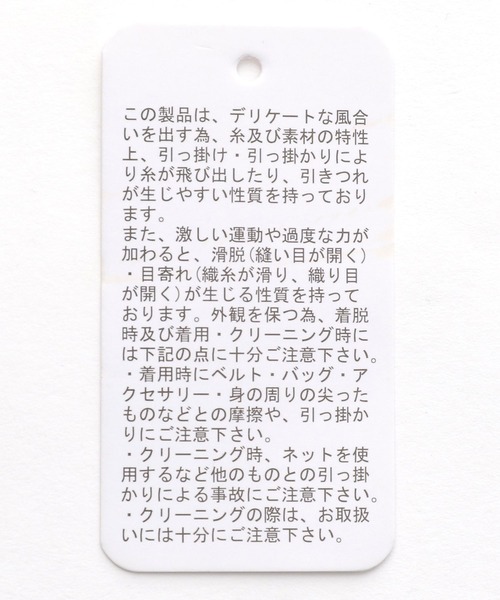 この製品は、デリケートな風合
いを出す為、糸及び素材の特性
上、引っ掛け・引っ掛かりによ
り糸が飛び出したり、引きつれ
が生じやすい性質を持っており
ます。
また、激しい運動や過度な力が
加わると、滑脱(縫い目が開く)
・目寄れ(織糸が滑り、織り目
が開く)が生じる性質を持って
おります。外観を保つ為、着脱
時及び着用・クリーニング時に
は下記の点に十分ご注意下さい。
・着用時にベルト・バッグ・ア
クセサリー・身の周りの尖った
ものなどとの摩擦や、引っ掛か
りにご注意下さい。
・クリーニング時、ネットを使
用するなど他のものとの引っ掛
かりによる事故にご注意下さい。
・クリーニングの際は、お取扱
いには十分にご注意下さい。